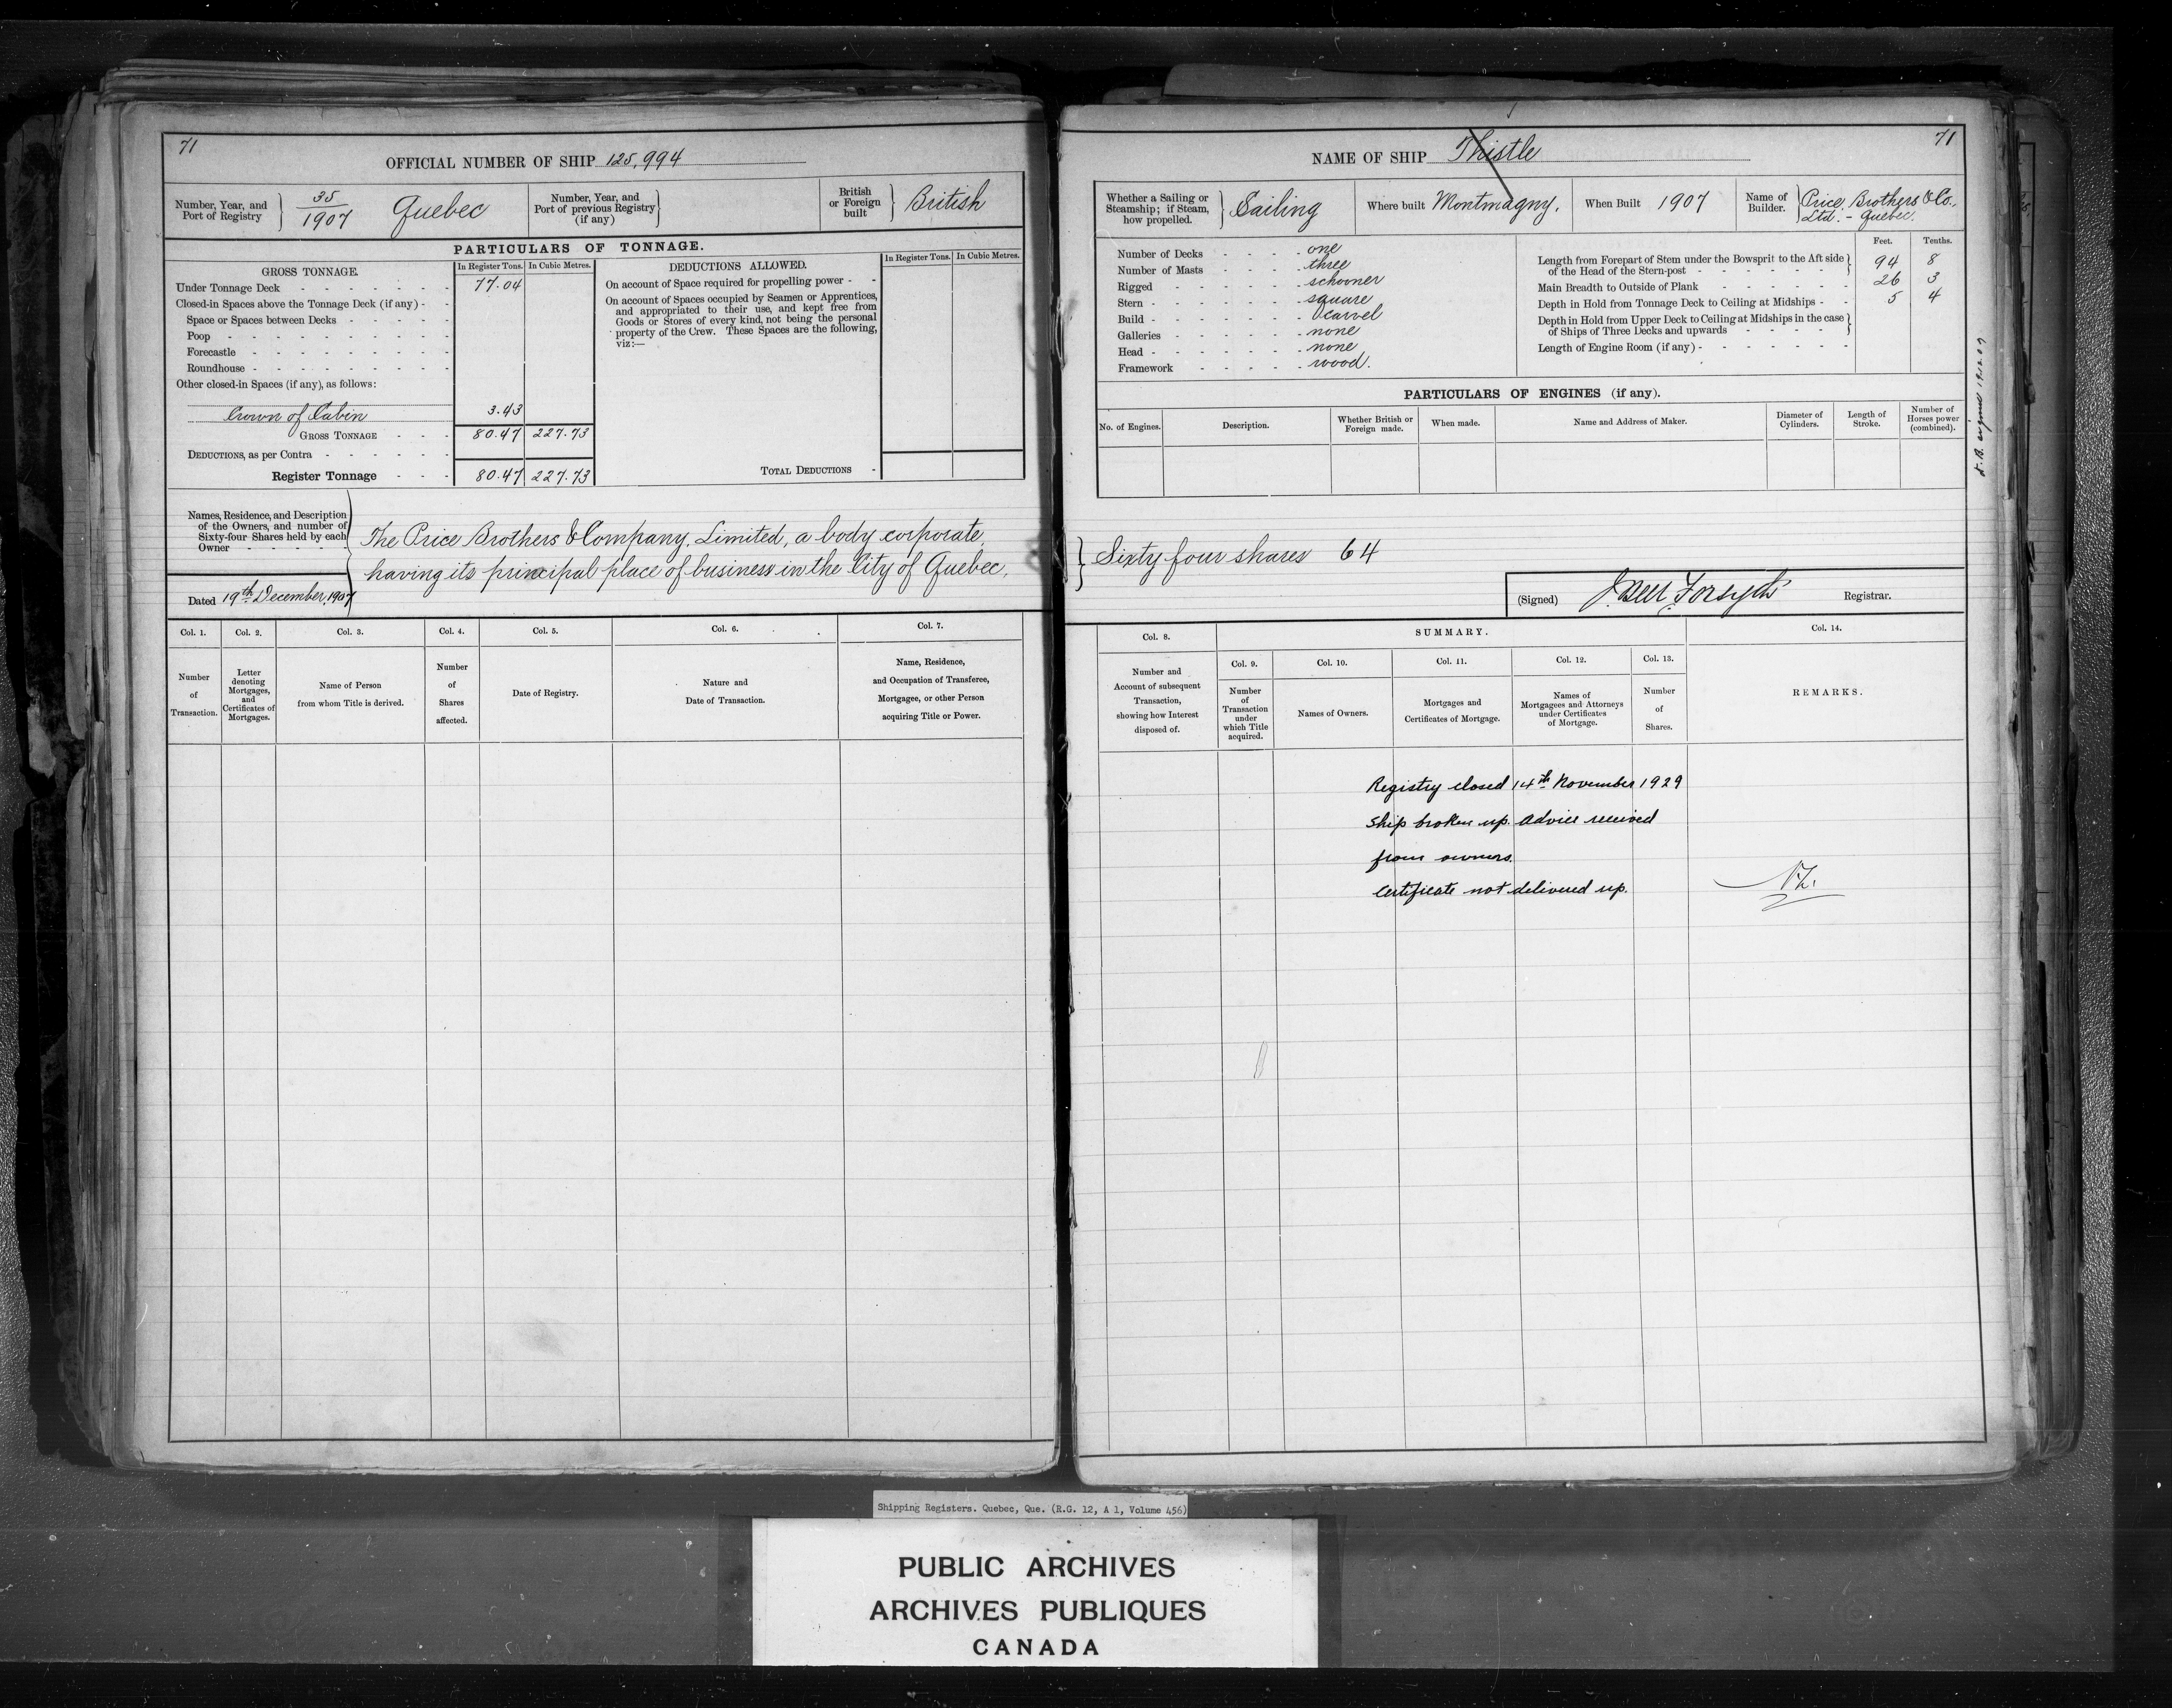 71
OFFICIAL NUMBER OF SHIP 125,994
Number, Year, and Port of Registry } 35/1907 Quebec
Number, Year, and Port of previous Registry (if any) }
British or Foreign built } British
PARTICULARS OF TONNAGE.
GROSS TONNAGE. In Register Tons. In Cubic Metres.
Under Tonnage Deck 77.04
Closed-in Spaces above the Tonnage Deck (if any)
Space or Spaces between Decks
Poop
Forecastle
Roundhouse
Other closed-in Spaces (if any), as follows:
Crown of Cabin 3.43
GROSS TONNAGE 80.47 227.73
DEDUCTIONS, as per Contra
Register Tonnage 80.47 227.73
DEDUCTIONS ALLOWED. In Register Tons. In Cubic Metres.
On account of Space required for propelling power
On account of Spaces occupied by Seamen or Apprentices,
and appropriated to their use, and kept free from
Goods or Stores of every kind, not being the personal
property of the Crew. These Spaces are the following,
viz:—
TOTAL DEDUCTIONS
Names, Residence, and Description
of the Owners, and number of
Sixty-four Shares held by each
Owner
The Price Brothers & Company, Limited, a body corporate,
having its principal place of business in the City of Quebec,
Dated 19th December, 1907
Col. 1. Col. 2. Col. 3. Col. 4. Col. 5. Col. 6. Col. 7.
Number of Transaction.
Letter denoting Mortgages, and Certificates of Mortgages.
Name of Person from whom Title is derived.
Number of Shares affected.
Date of Registry.
Nature and Date of Transaction.
Name, Residence, and Occupation of Transferee, Mortgagee, or other Person acquiring Title or Power.
71
NAME OF SHIP Thistle
Whether a Sailing or Steamship; if Steam, how propelled. } Sailing
Where built Montmagny.
When Built 1907
Name of Builder. } Price, Brothers & Co., Ltd. - Quebec.
Number of Decks one
Number of Masts three
Rigged schooner
Stern square
Build Carvel
Galleries none
Head none
Framework wood.
Feet. Tenths.
Length from Forepart of Stem under the Bowsprit to the Aft side of the Head of the Stern-post 94 8
Main Breadth to Outside of Plank 26 3
Depth in Hold from Tonnage Deck to Ceiling at Midships 5 4
Depth in Hold from Upper Deck to Ceiling at Midships in the case of Ships of Three Decks and upwards
Length of Engine Room (if any)
PARTICULARS OF ENGINES (if any).
No. of Engines. Description. Whether British or Foreign made. When made. Name and Address of Maker. Diameter of Cylinders. Length of Stroke. Number of Horses power (combined).
Sixty four shares 64
(Signed) J. Bell Forsyth Registrar.
Col. 8. SUMMARY. Col. 14.
Col. 9. Col. 10. Col. 11. Col. 12. Col. 13.
Number and Account of subsequent Transaction, showing how Interest disposed of.
Number of Transaction under which Title acquired.
Names of Owners.
Mortgages and Certificates of Mortgage.
Names of Mortgagees and Attorneys under Certificates of Mortgage.
Number of Shares.
REMARKS.
Registry closed 14th November 1929
Ship broken up. Advice received
from owners.
Certificate not delivered up.
Shipping Registers. Quebec, Que. (R.G. 12, A 1, Volume 456)
PUBLIC ARCHIVES
ARCHIVES PUBLIQUES
CANADA